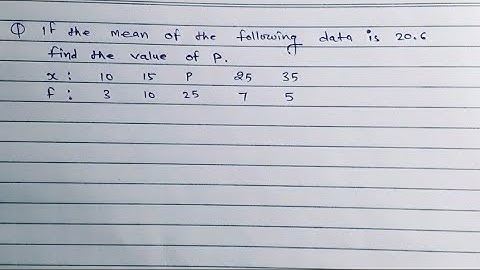 Q If the mean of the following data is 20.6
find the value of P.
x : 10 15 P 25 35
f : 3 10 25 7 5